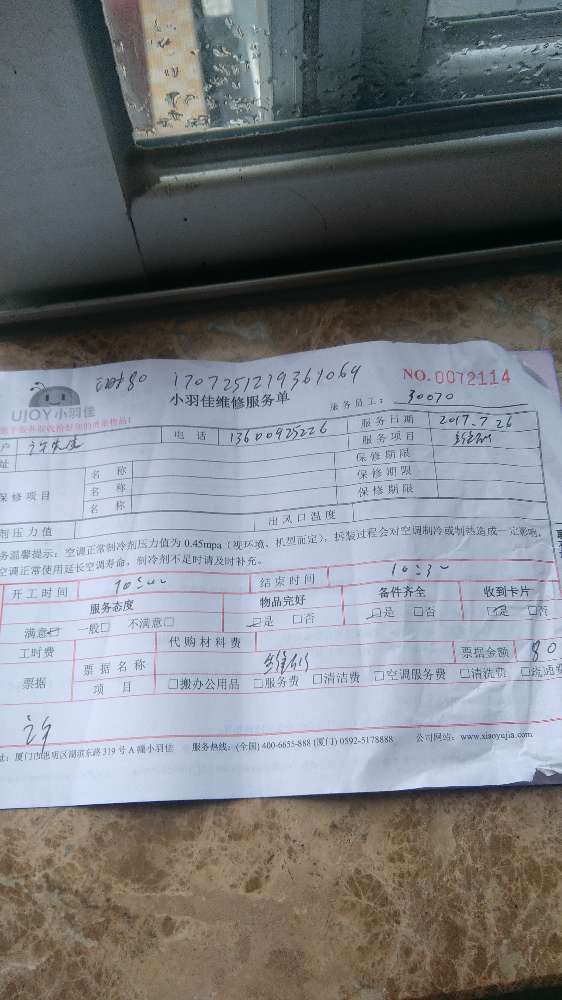 170725121936 1064 NO.0072114
UJOY小羽佳 小羽佳维修服务单 服务员工: 30070
电 话 13600925226 服务日期 2017.7.26
址 服务项目
名 称 保修期限
保修项目 名 称 保修期限
名 称 保修期限
剂压力值 出风口温度
务温馨提示: 空调正常制冷剂压力值为 0.45mpa (视环境、机型而定), 拆装过程会对空调制冷或制热造成一定影响,
空调正常使用延长空调寿命, 制冷剂不足时请及时补充。
开工时间 10:00 结束时间 10:30
服务态度 物品完好 备件齐全 收到卡片
满意☑ 一般□ 不满意□ ☑是 □否 ☑是 □否 ☑是 □否
工时费 代购材料费
票据 票据名称 维修 票据金额 80
项 目 □搬办公用品 □服务费 □清洁费 □空调服务费 □清洗费 □疏通费
许
址: 厦门市思明区湖滨东路 319 号 A 幢小羽佳 服务热线: (全国) 400-6655-888 (厦门) 0592-5178888 公司网站: www.xiaoyujia.com